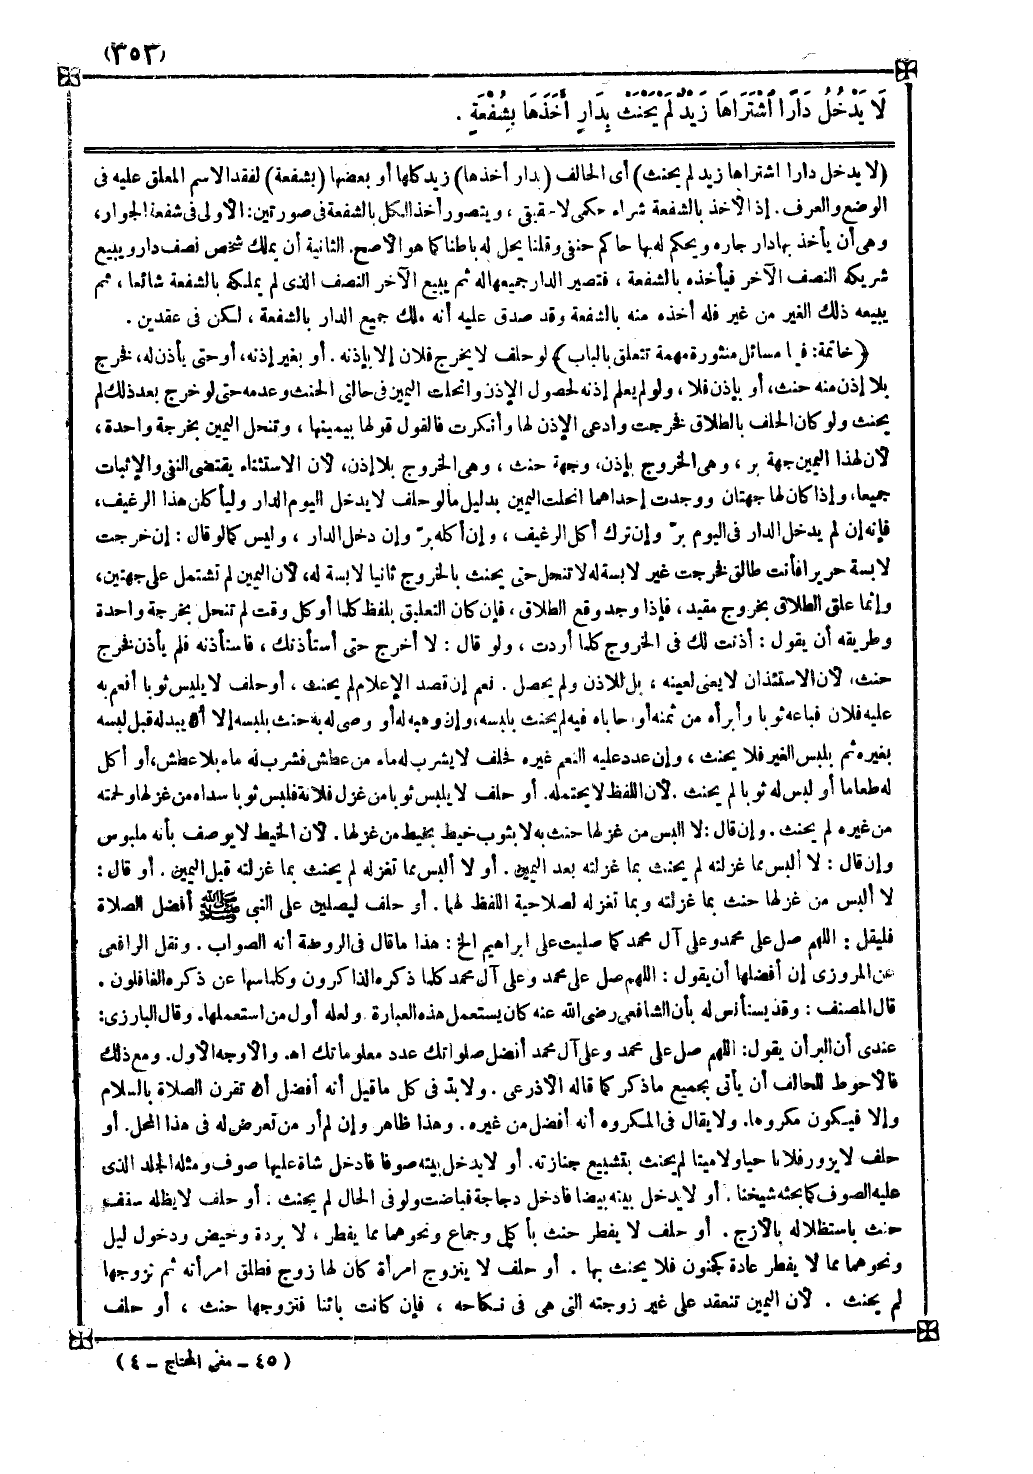 (٣٥٣)
لَا يَدْخُلُ دَارًا اشْتَرَاهَا زَيْدٌ لَمْ يَحْنَثْ بِدَارٍ أَخَذَهَا بِشُفْعَةٍ .
(لا يدخل دارا اشتراها زيد لم يحنث) أى الحالف (بدار أخذها) زيد كلها أو بعضها (بشفعة) لفقد الاسم المعلق عليه فى
الوضع والعرف. إذ الأخذ بالشفعة شراء حكمى لا حقيقى ، ويتصور أخذ الكل بالشفعة فى صورتين: الأولى فى شفعة الجوار،
وهى أن يأخذ بها دار جاره ويحكم له بها حاكم حنفى وقلنا يحل له باطنا كما هو الأصح. الثانية أن يملك شخص نصف دار ويبيع
شريكه النصف الآخر فيأخذه بالشفعة ، فتصير الدار جميعها له ثم يبيع الآخر النصف الذى لم يملكه بالشفعة شائعا ، ثم
يبيعه ذلك الغير من غير فله أخذه منه بالشفعة وقد صدق عليه أنه ملك جميع الدار بالشفعة ، لكن فى عقدين .
(خاتمة: فى مسائل منثورة مهمة تتعلق بالباب) لو حلف لا يخرج فلان إلا بإذنه . أو بغير إذنه، أو حتى يأذن له، فخرج
بلا إذن منه حنث، أو بإذن فلا ، ولو لم يعلم إذنه لحصول الإذن وانحلت اليمين فى حالتى الحنث وعدمه حتى لو خرج بعد ذلك لم
يحنث ولو كان الحلف بالطلاق فخرجت وادعى الإذن لها وأنكرت فالقول قولها بيمينها ، وتنحل اليمين بخرجة واحدة ،
لأن لهذا اليمين جهة بر ، وهى الخروج بإذن، وجهة حنث ، وهى الخروج بلا إذن، لأن الاستثناء يقتضى النفى والإثبات
جميعا، وإذا كان لها جهتان ووجدت إحداهما انحلت اليمين بدليل ما لو حلف لا يدخل اليوم الدار وليأكلن هذا الرغيف،
فإنه إن لم يدخل الدار فى اليوم برّ وإن ترك أكل الرغيف ، وإن أكله برّ وإن دخل الدار ، وليس كما لو قال : إن خرجت
لابسة حرير افأنت طالق فخرجت غير لابسة له لا تنحل حتى يحنث بالخروج ثانيا لابسة له، لأن اليمين لم تشتمل على جهتين،
وإنما علق الطلاق بخروج مقيد ، فإذا وجد وقع الطلاق ، فإن كان التعليق بلفظ كلما أو كل وقت لم تنحل بخرجة واحدة
وطريقه أن يقول : أذنت لك فى الخروج كلما أردت ، ولو قال : لا أخرج حتى أستأذنك ، فاستأذنه فلم يأذن فخرج
حنث، لأن الاستئذان لا يعنى لعينه ، بل للاذن ولم يحصل . نعم إن قصد الإعلام لم يحنث ، أو حلف لا يلبس ثوبا أنعم به
عليه فلان فباعه ثوبا وأبرأه من ثمنه أو حاباه فيه لم يحنث بلبسه، وإن وهبه له أو وصى له به حنث بلبسه إلا أن يبدله قبل لبسه
بغيره ثم يلبس الغير فلا يحنث ، وإن عدد عليه النعم غيره فحلف لا يشرب له ماء من عطش فشرب له ماء بلا عطش، أو أكل
له طعاما أو لبس له ثوبا لم يحنث . لأن اللفظ لا يحتمله. أو حلف لا يلبس ثوبا من غزل فلانة فلبس ثوبا سداه من غزلها ولحمته
من غيره لم يحنث . وإن قال : لا ألبس من غزلها حنث به لا بثوب خيط بخيط من غزلها . لأن الخيط لا يوصف بأنه ملبوس
وإن قال : لا ألبس مما غزلته لم يحنث بما غزلته بعد اليمين . أو لا ألبس مما تغزله لم يحنث بما غزلته قبل اليمين . أو قال :
لا ألبس من غزلها حنث بما غزلته وبما تغزله لصلاحية اللفظ لهما . أو حلف ليصلين على النبى ﷺ أفضل الصلاة
فليقل : اللهم صل على محمد وعلى آل محمد كما صليت على ابراهيم الخ : هذا ما قال فى الروضة أنه الصواب . ونقل الرافعى
عن المروزى إن أفضلها أن يقول : اللهم صل على محمد وعلى آل محمد كلما ذكره الذاكرون وكلما سها عن ذكره الغافلون .
قال المصنف : وقد يستأنس له بأن الشافعى رضى الله عنه كان يستعمل هذه العبارة ولعله أول من استعملها. وقال البارزى:
عندى أن البر أن يقول: اللهم صل على محمد وعلى آل محمد أفضل صلواتك عدد معلوماتك اهـ. والأوجه الأول. ومع ذلك
فالأحوط للحالف أن يأتى بجميع ما ذكر كما قاله الأذرعى . ولا بدّ فى كل ما قيل أنه أفضل أن تقرن الصلاة بالسلام
وإلا فيكون مكروها. ولا يقال فى المكروه أنه أفضل من غيره. وهذا ظاهر وإن لم أر من تعرض له فى هذا المحل. أو
حلف لا يزور فلانا حيا ولا ميتا لم يحنث بتشييع جنازته. أو لا يدخل بيته صوفا فادخل شاة عليها صوف ومثله الجلد الذى
عليه الصوف كما بحثه شيخنا . أو لا يدخل بيته بيضا فادخل دجاجة فباضت ولو فى الحال لم يحنث . أو حلف لا يظله سقف
حنث باستظلاله بالأزج . أو حلف لا يفطر حنث بأكل وجماع ونحوهما مما يفطر ، لا بردة وحيض ودخول ليل
ونحوهما مما لا يفطر عادة كجنون فلا يحنث بها . أو حلف لا يتزوج امرأة كان لها زوج فطلق امرأته ثم تزوجها
لم يحنث . لأن اليمين تنعقد على غير زوجته التى هى فى نكاحه ، فإن كانت بائنا فتزوجها حنث ، أو حلف
( ٤٥ – مغنى المحتاج – ٤ )